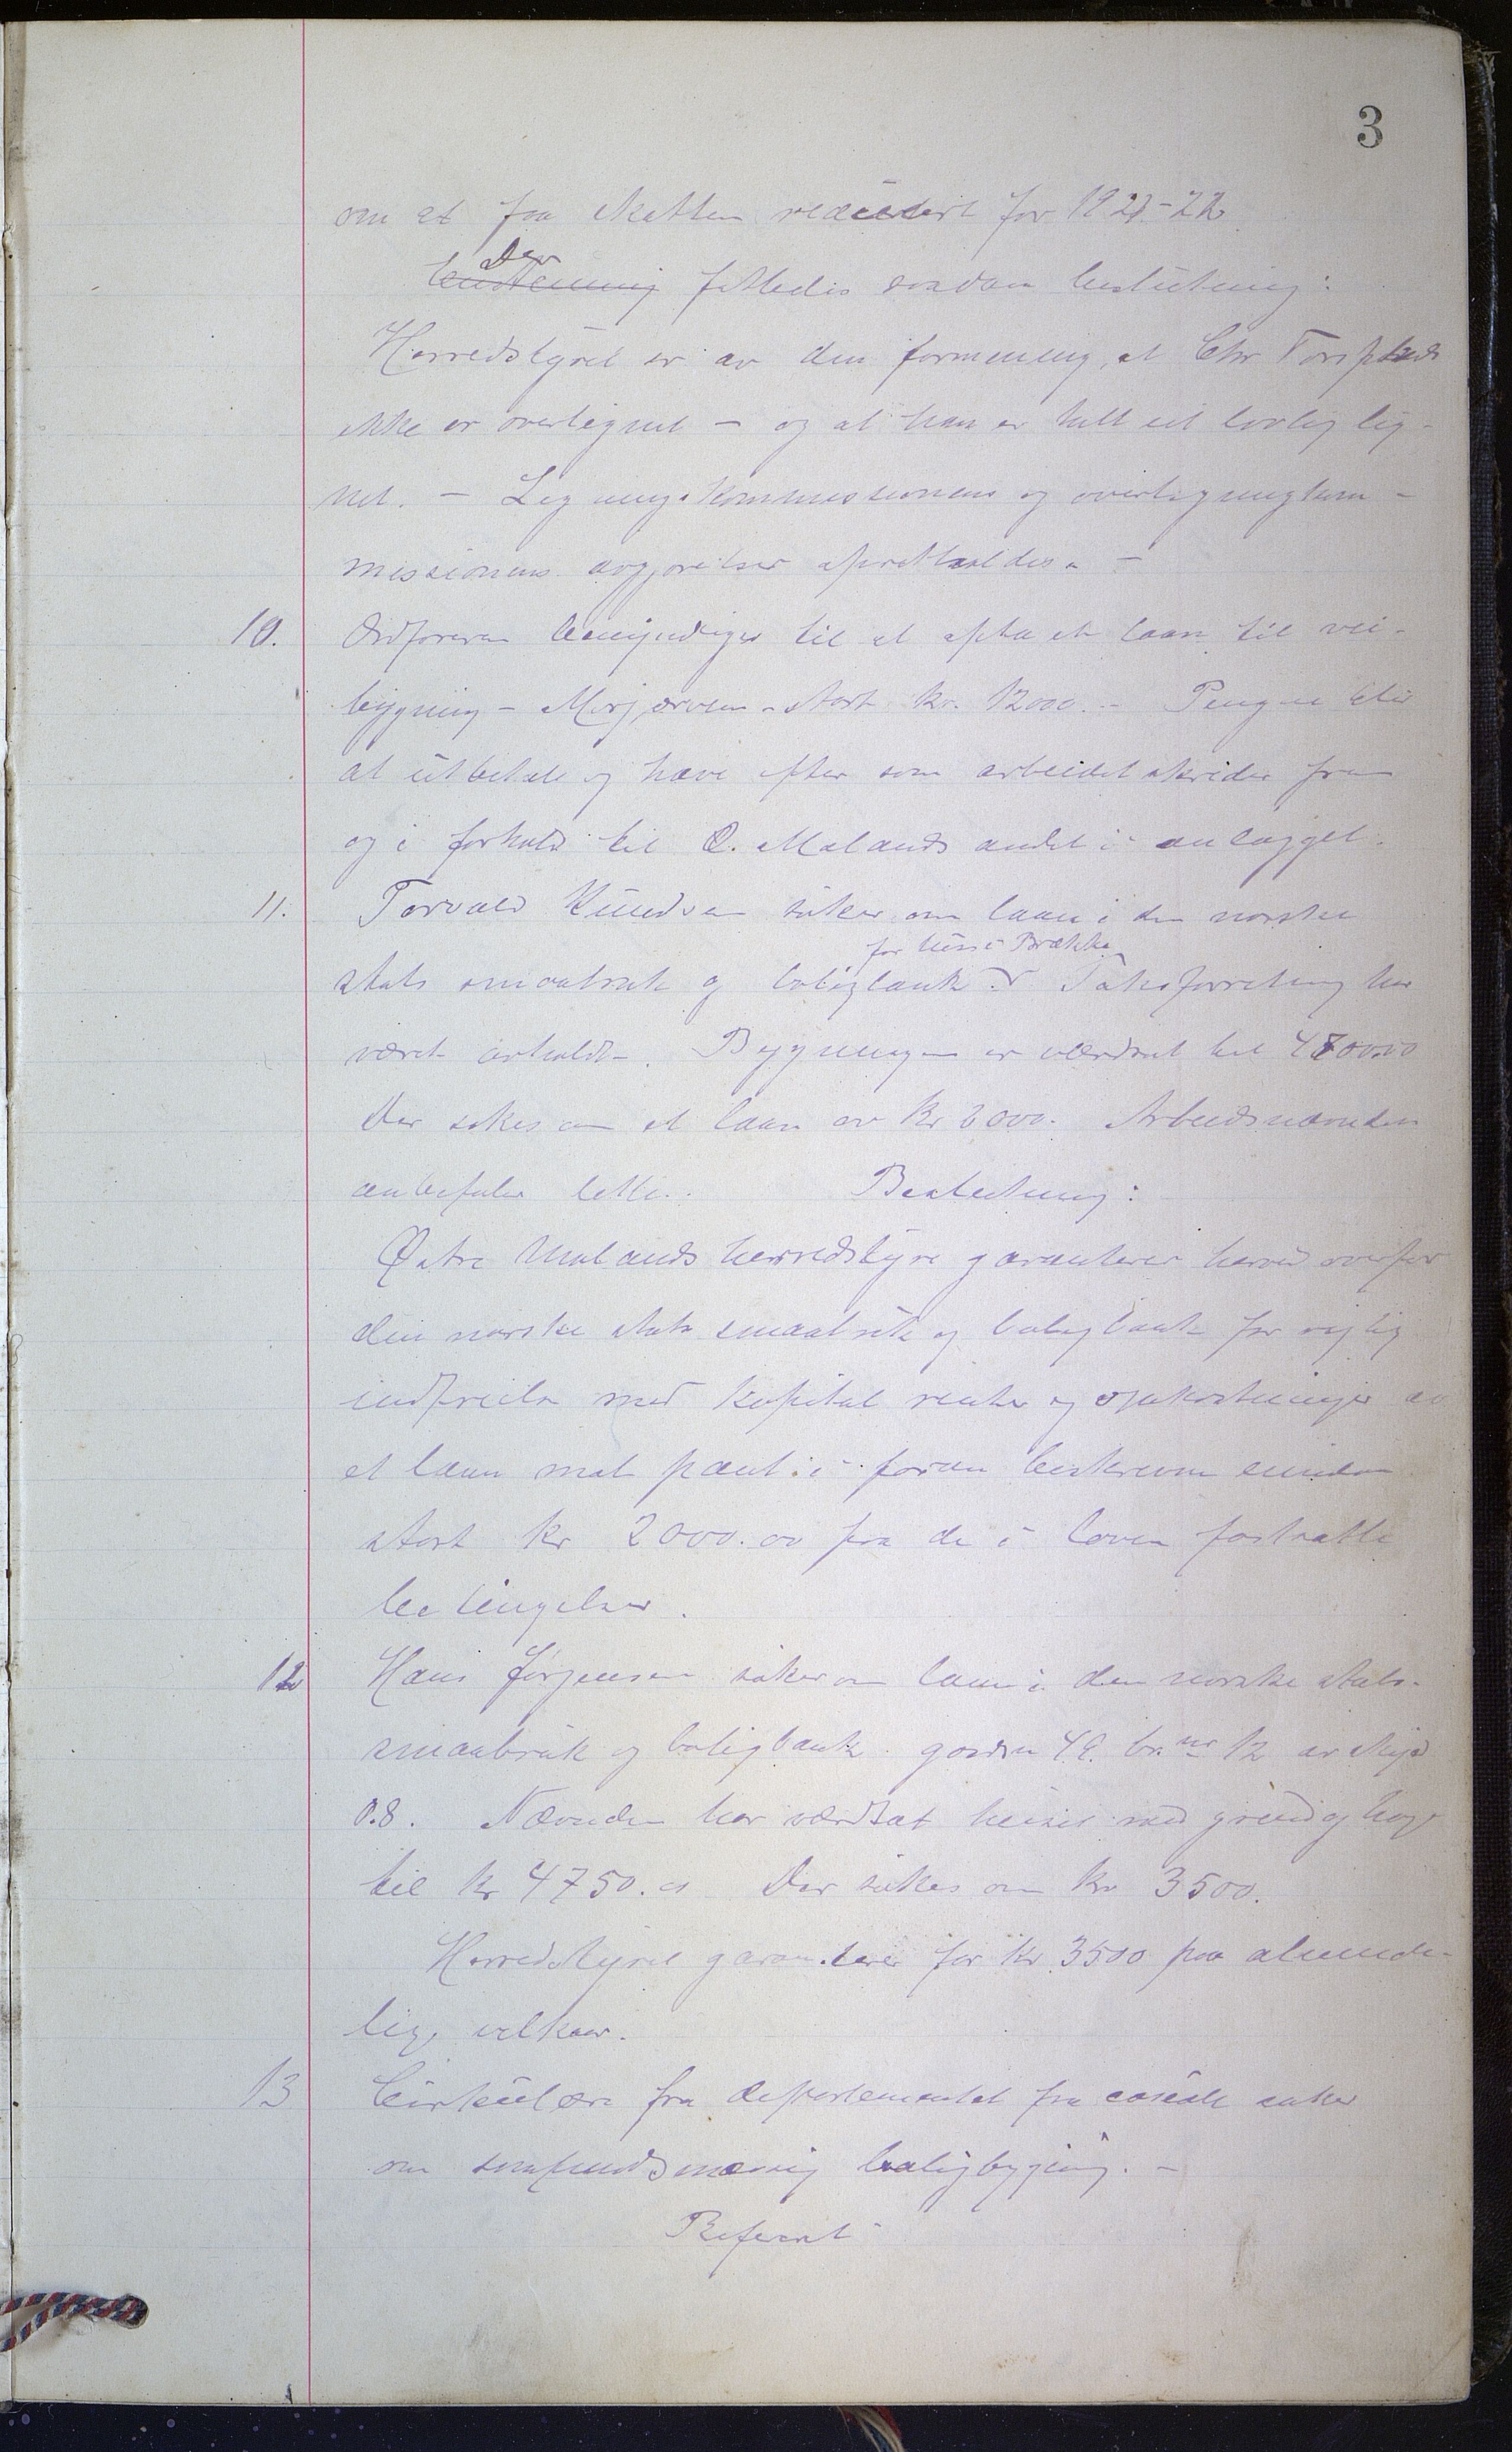 3
om at faa skatten reducert for 1921-22
Der
Beslutning fattedes saadan beslutning:
Herredstyret er av den formening, at Chr Torsplads
ikke er overlignet - og at han er helt ut lovlig lig-
net. - Ligningskommissionens og overligningskom-
missionens avgjørelser opretholdes. -
10. Ordføreren bemyndiges til at opta et laan til vei-
bygning - Morjærven - stort kr. 12000. - Pengene blir
at utbetale og hæve efter som arbeidet skrider frem
og i forhold til Ø. Molands andel i anlægget.
11. Torvald Knudsen søker om laan i den norske
for huse i Brække
stats smaabruk og boligbank. Taksforretning har
været avholdt. Bygningen er værdsat til 4800.00
Der søkes om et laan av kr 2000. Arbeidsnævnden
anbefaler dette. Beslutning:
Østre Molands herredstyre garanterer herved overfor
den norske stats smaabruk og boligbank for rigtig
indfrielse med kapital renter og omkostninger av
et laan mot pant i foran beskrevne eiendom
stort kr 2000.00 paa de i loven fastsatte
betingelser.
12 Hans Jørgensen søker om laan i den norske stats-
smaabruk og boligbank. gaardsn 49. br. nr 12 av skyld
0.8. Nævnden har værdsat huset med grund og have
til kr 4750.00 Der søkes om kr 3500.
Herredstyret garanterer for kr 3500 paa alminde-
lige vilkaar.
13 Cirkulære fra departementet for sociale saker
om samfundsmæssig boligbygging. -
Referert